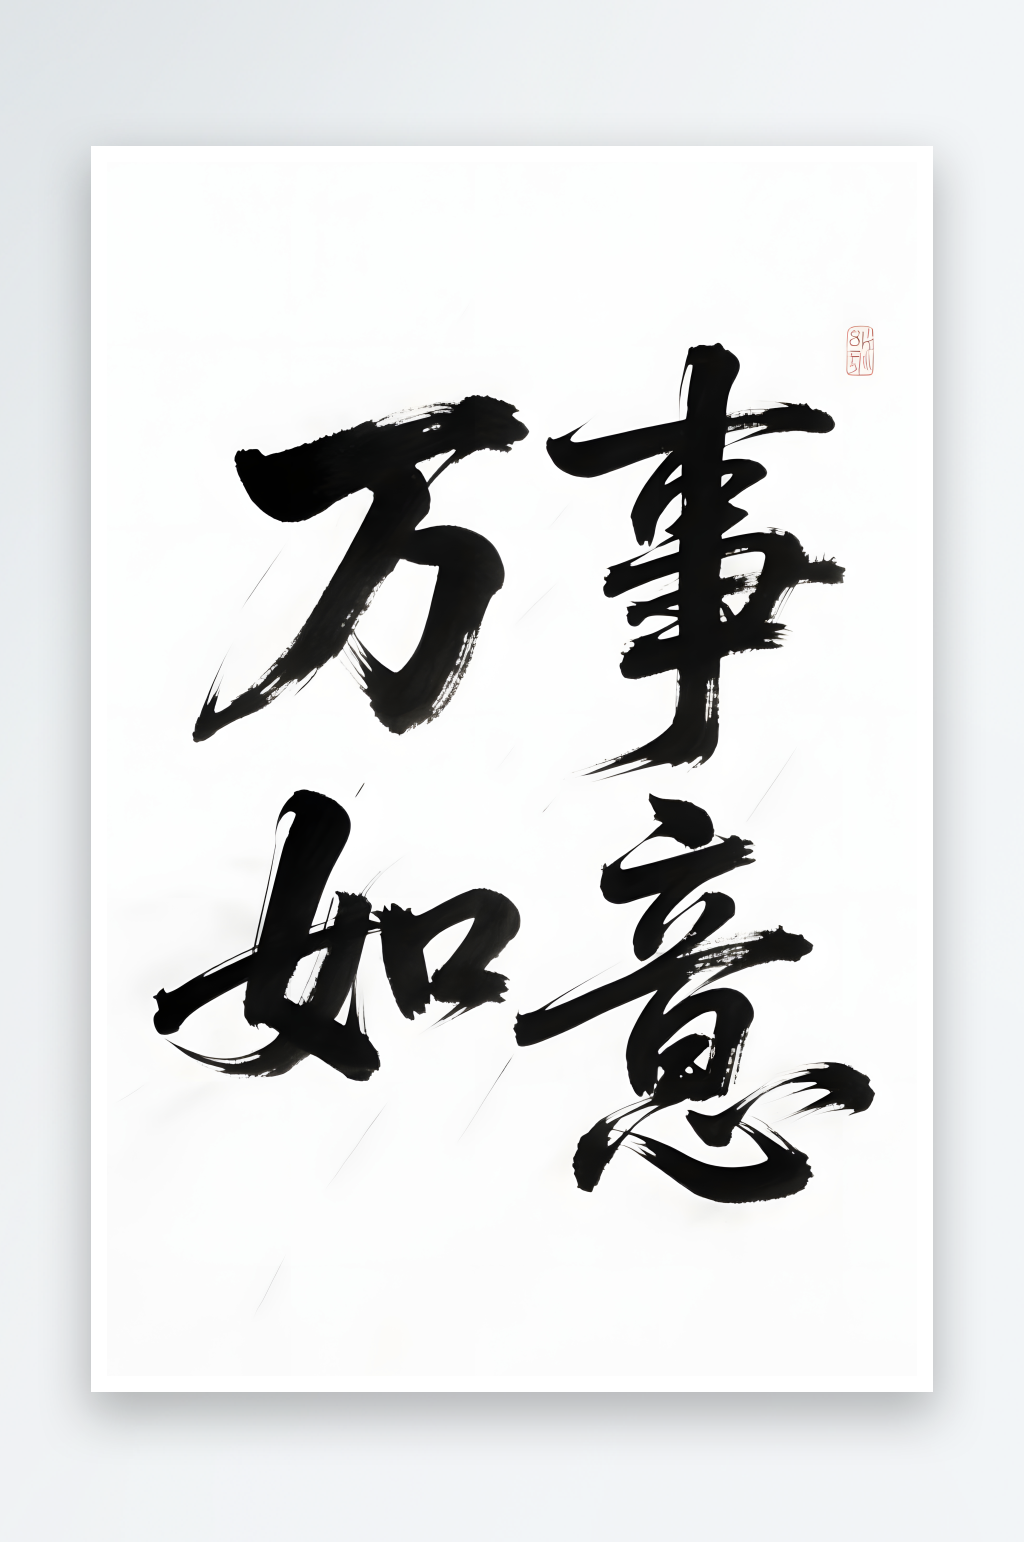 万事
如意